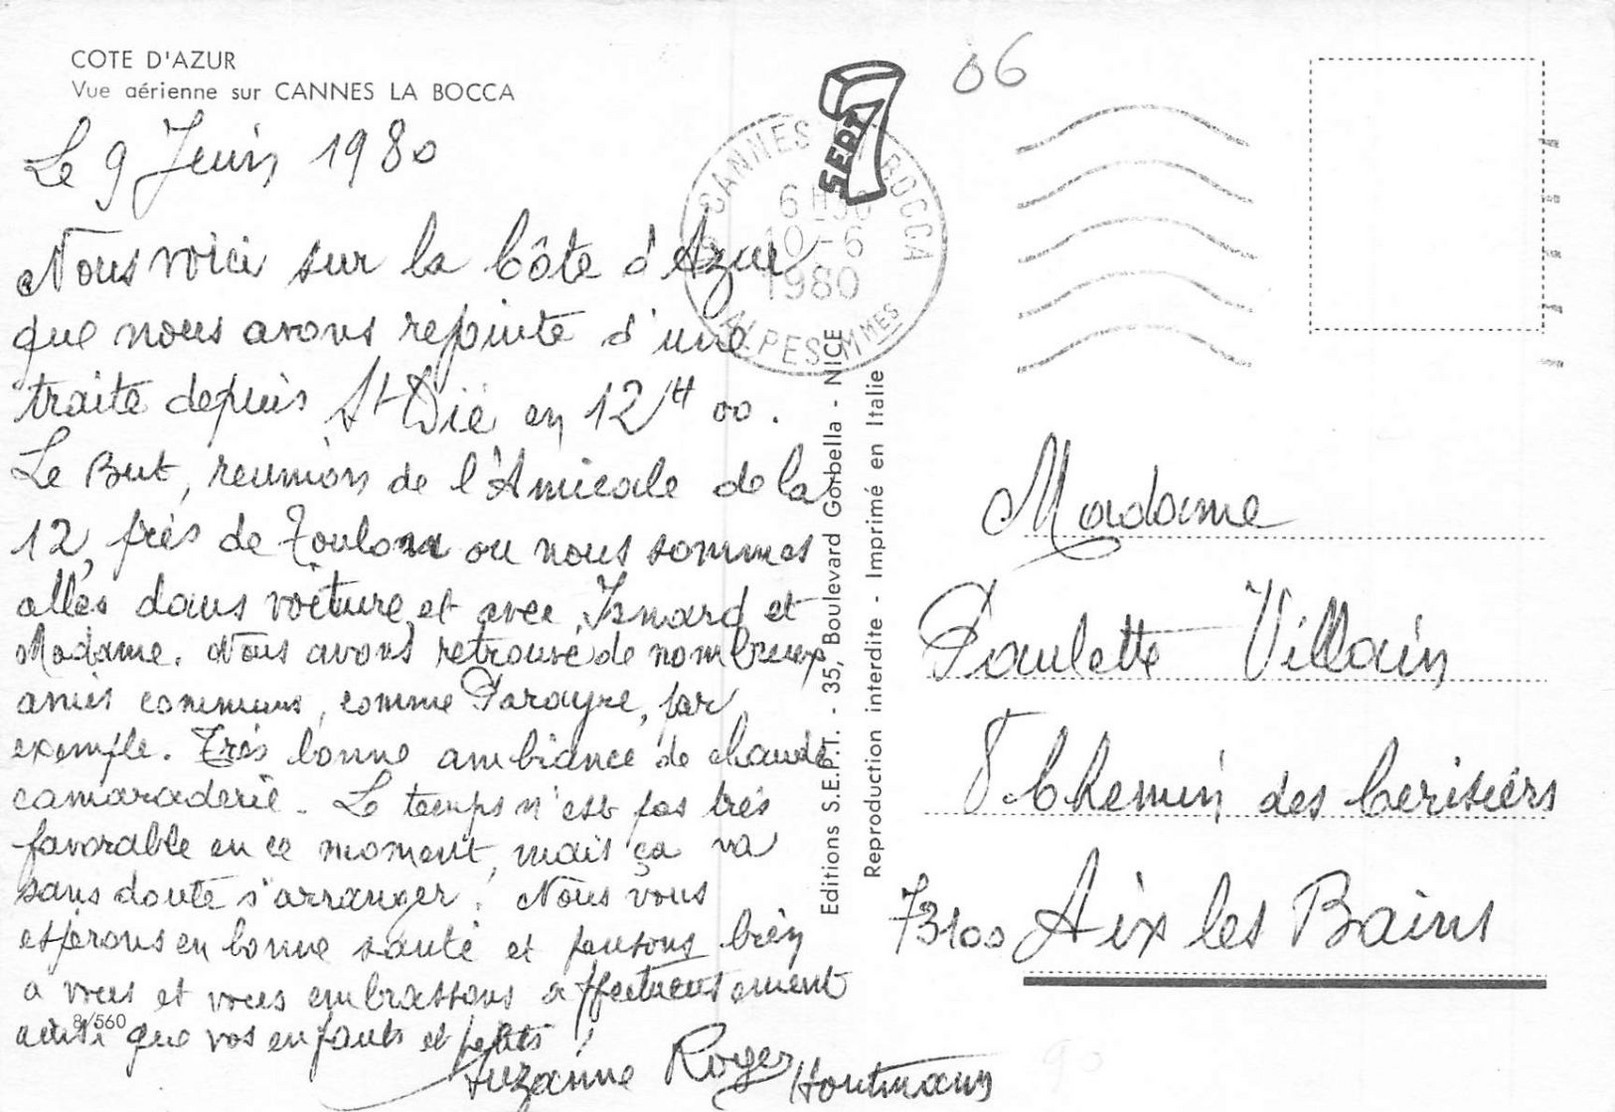 COTE D'AZUR
Vue aérienne sur CANNES LA BOCCA
Le 9 Juin 1980
Nous voici sur la Côte d'Azur
que nous avons rejointe d'une
traite depuis St Dié en 12 H 00.
Le But, reunion de l'Amicale de la
12, près de Toulon ou nous sommes
allés dans voiture et avec Isnard et
Madame. Nous avons retrouvé de nombreux
amis communs, comme Parayre, par
exemple. Très bonne ambiance de chaude
camaraderie. Le temps n'est pas très
favorable en ce moment, mais ça va
sans doute s'arranger. Nous vous
espérons en bonne santé et pensons bien
a vous et vous embrassons affectueusement
ainsi que vos enfants et petits !
8/560
Suzanne Roger Houtmann
CANNES BOCCA
6 H
10-6
1980
ALPES MMES
SEPT
7
06
Editions S.E.P.T. - 35, Boulevard Gorbella - NICE
Reproduction interdite - Imprimé en Italie
Madame
Paulette Villain
8 Chemin des Cerisiers
73100 Aix les Bains